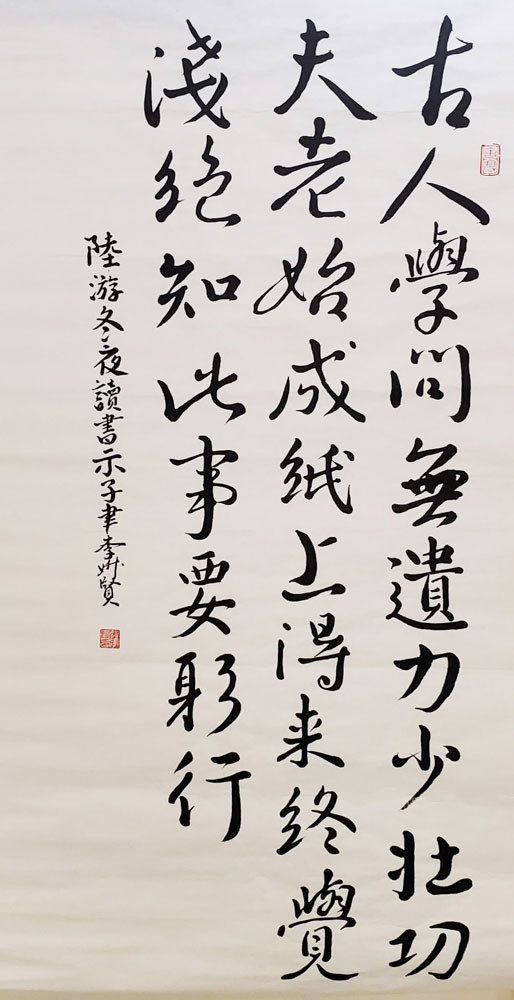 古人學問無遺力少壯功
夫老始成紙上得来終覺
淺絕知此事要躬行
陸游冬夜讀書示子聿李淑賢